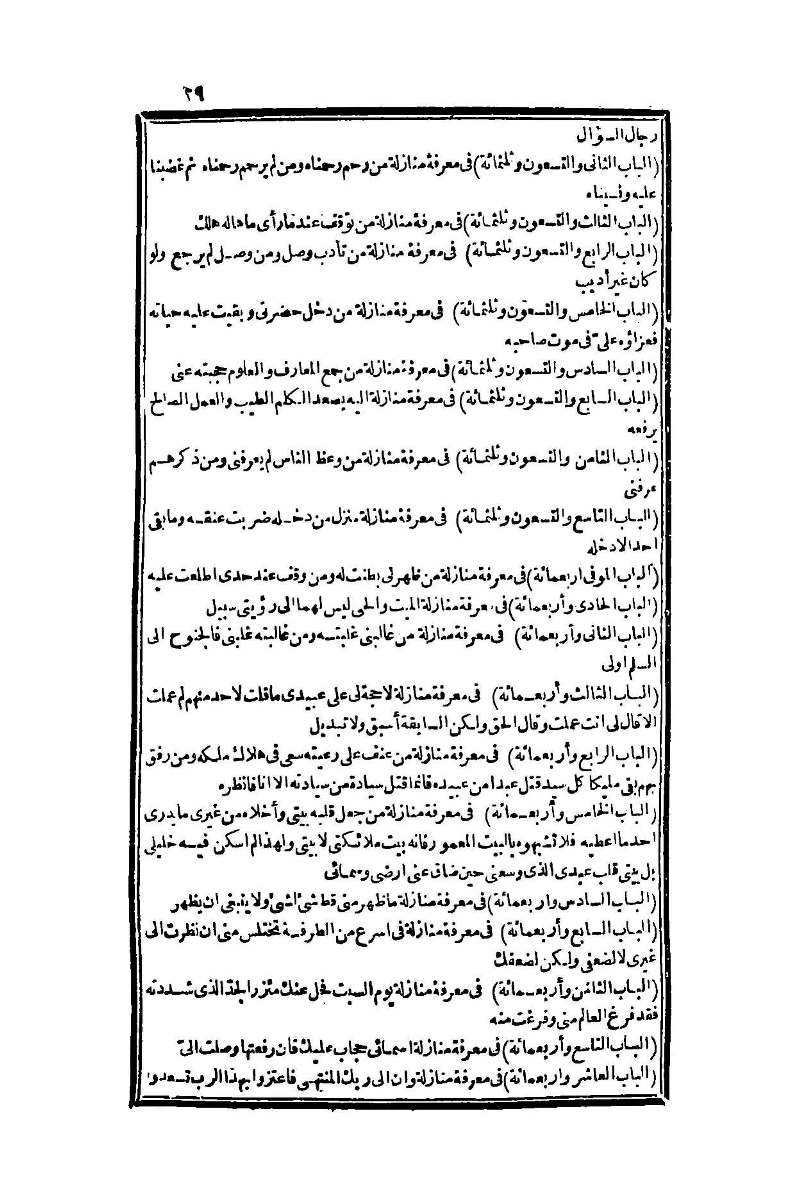 ٢٩
رجال السؤال
(الباب الثانى والتسعون وثلثمائة) فى معرفة منازلة من رحم رحمناه ومن لم يرحم رحمناه ثم غضبنا
عليه ونسيناه
(الباب الثالث والتسعون وثلثمائة) فى معرفة منازلة من توقف عند ما رأى ما هاله هلك
(الباب الرابع والتسعون وثلثمائة) فى معرفة منازلة من تأدب وصل ومن وصل لم يرجع ولو
كان غير أديب
(الباب الخامس والتسعون وثلثمائة) فى معرفة منازلة من دخل حضرتى وبقيت عليه حياته
فعزاؤه علىّ فى موت صاحبه
(الباب السادس والتسعون وثلثمائة) فى معرفة منازلة من جمع المعارف والعلوم حجبته عنى
(الباب السابع والتسعون وثلثمائة) فى معرفة منازلة اليه يصعد الكلم الطيب والعمل الصالح
يرفعه
(الباب الثامن والتسعون وثلثمائة) فى معرفة منازلة من وعظ الناس لم يعرفنى ومن ذكرهم
عرفنى
(الباب التاسع والتسعون وثلثمائة) فى معرفة منازلة منزل من دخله ضربت عنقه وما بقى
احد الا دخله
(الباب الموفى اربعمائة) فى معرفة منازلة من ظهر لى بطنت له ومن وقف عند حدى اطلعت عليه
(الباب الحادى وأربعمائة) فى معرفة منازلة الميت والحى ليس لهما الى رؤيتى سبيل
(الباب الثانى وأربعمائة) فى معرفة منازلة من غالبنى غلبته ومن غالبته غلبنى فالجنوح الى
السلم اولى
(الباب الثالث وأربعمائة) فى معرفة منازلة لا حجة لى على عبيدى ما قلت لاحد منهم لم عملت
الا قال لى انت عملت وقال الحق ولكن السابقة أسبق ولا تبديل
(الباب الرابع وأربعمائة) فى معرفة منازلة من عنف على رعيته سعى فى هلاك ملكه ومن رفق
بهم بقى مليكا كل سيد قتل عبدا من عبيده فانما قتل سيادة من سيادته الا انا فانظره
(الباب الخامس وأربعمائة) فى معرفة منازلة من جعل قلبه بيتى وأخلاه من غيرى ما يدرى
احد ما اعطيه فلا تشبهوه بالبيت المعمور فانه بيت ملائكتى لا بيتى ولهذا لم اسكن فيه خليلى
بل بيتى قلب عبدى الذى وسعنى حين ضاق عنى ارضى وسمائى
(الباب السادس واربعمائة) فى معرفة منازلة ما ظهر منى قط شئ لشئ ولا ينبغى ان يظهر
(الباب السابع وأربعمائة) فى معرفة منازلة فى اسرع من الطرفة تختلس منى ان نظرت الى
غيرى لا لضعفى ولكن لضعفك
(الباب الثامن وأربعمائة) فى معرفة منازلة يوم السبت فحل عنك مئزر الجدّ الذى شددته
فقد فرغ العالم منى وفرغت منه
(الباب التاسع وأربعمائة) فى معرفة منازلة اسمائى حجاب عليك فان رفعتها وصلت الىّ
(الباب العاشر واربعمائة) فى معرفة منازلة وان الى ربك المنتهى فاعتزوا بهذا الرب تسعدوا